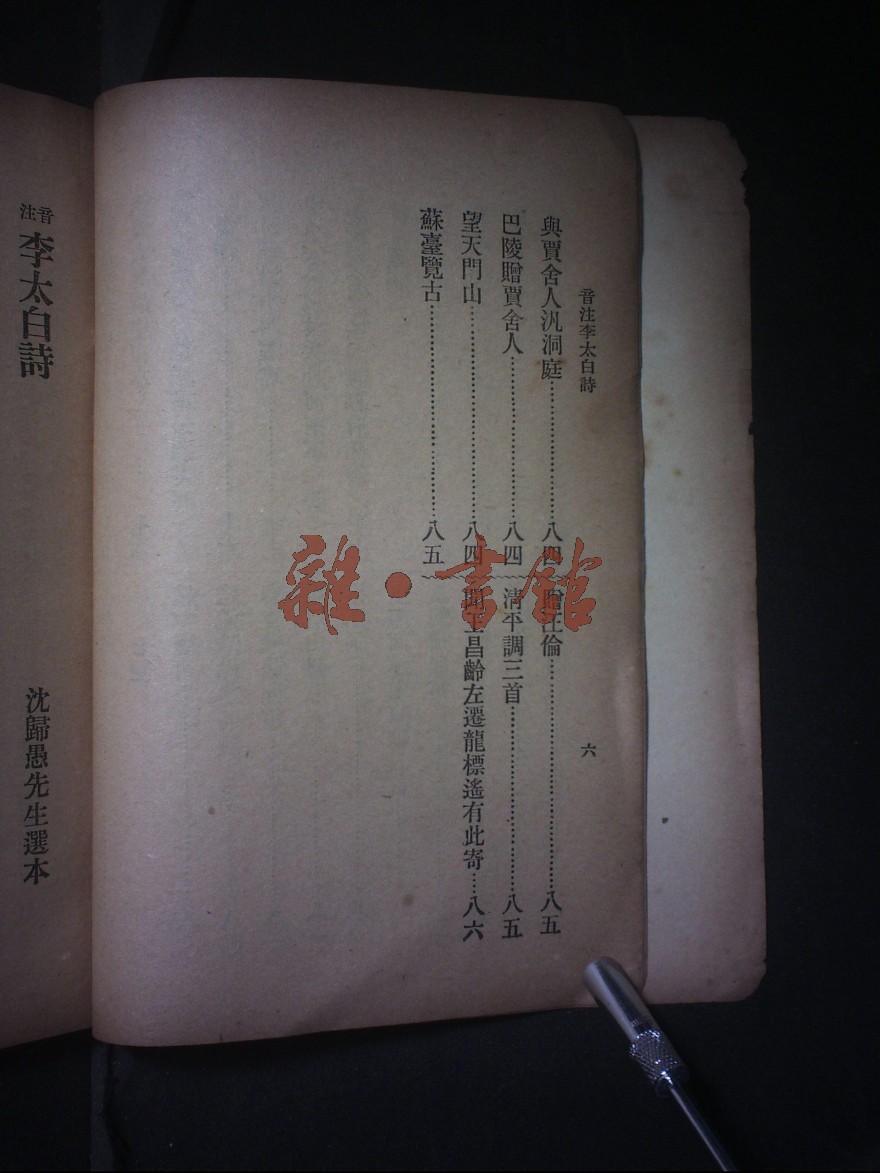 音注李太白詩
六
與賈舍人汎洞庭…………八四
巴陵贈賈舍人…………八四
望天門山…………八四
蘇臺覽古…………八五
贈汪倫…………八五
清平調三首…………八五
聞王昌齡左遷龍標遙有此寄…八六
音注 李太白詩
沈歸愚先生選本
雜·書館